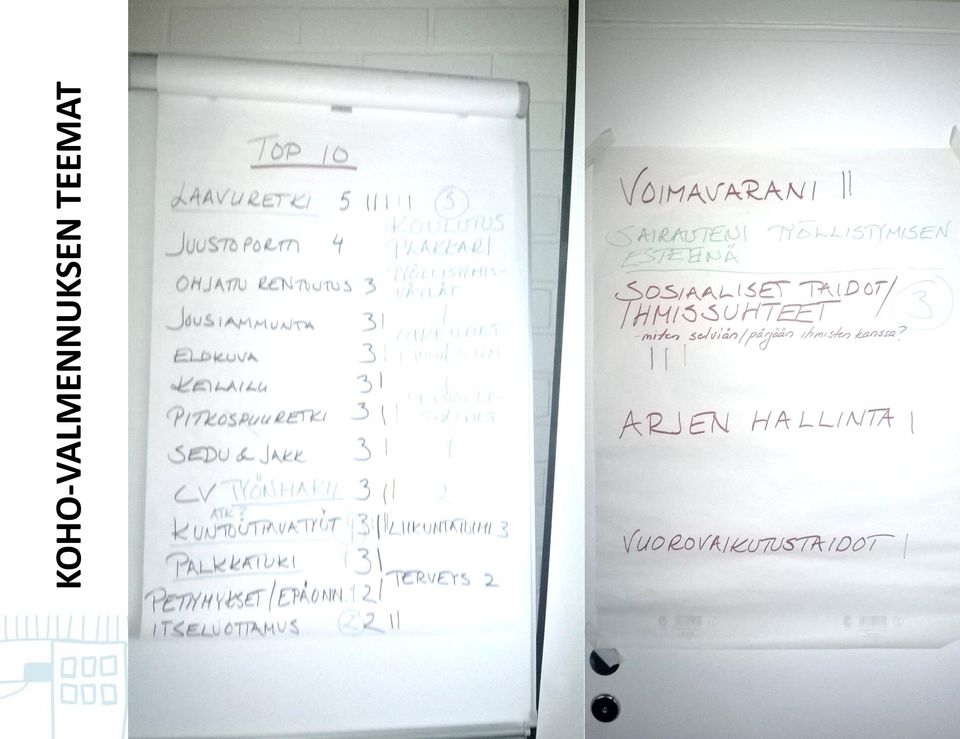 KOHO-VALMENNUKSEN TEEMAT
TOP 10
LAAVURETKI 5 ||||| 5
KOULUTUS
JUUSTOPORTTI 4 PLAKKARI
TYÖLLISTYMIS-
OHJATTU RENTOUTUS 3 VÄYLÄT
JOUSIAMMUNTA 3| |
ELOKUVA 3|
KEILAILU 3|
PITKOSPUURETKI 3||
SEDU & JAKK 3| |
CV TYÖNHAKU 3||
ATK?
KUNTOUTTAVATYÖT 3|| LIIKUNTATIIMI 3
PALKKATUKI 3|
TERVEYS 2
PETTYMYKSET/EPÄONN. 2|
ITSELUOTTAMUS 2 2 ||
VOIMAVARANI ||
SAIRAUTENI TYÖLLISTYMISEN
ESTEENÄ
SOSIAALISET TAIDOT/ 3
IHMISSUHTEET
-miten selviän/pärjään ihmisten kanssa?
|||
ARJEN HALLINTA |
VUOROVAIKUTUSTAIDOT |